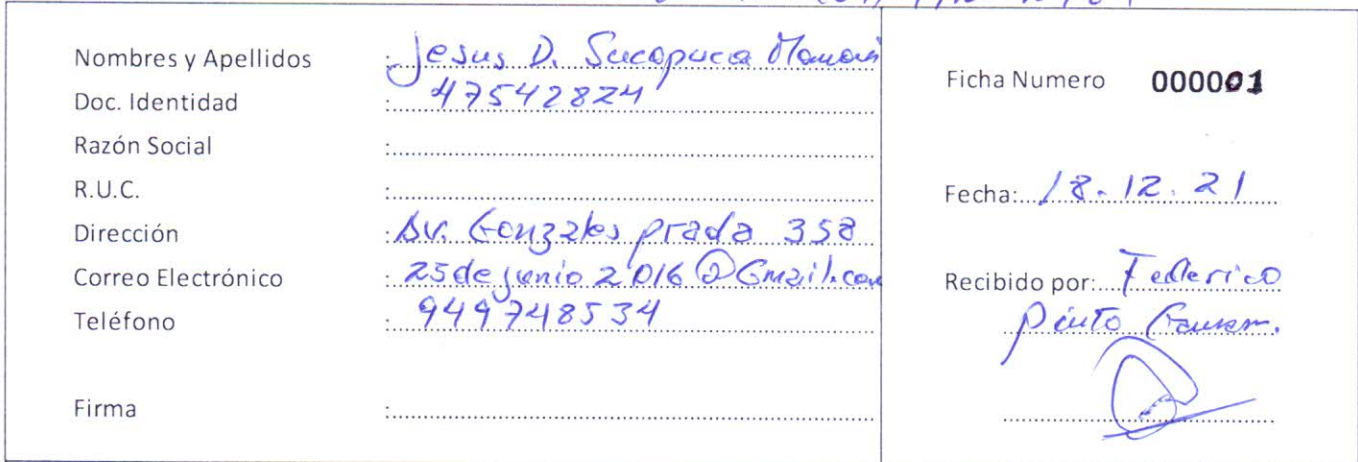 Nombres y Apellidos : Jesus D. Sucapuca Mamani
Doc. Identidad : 47542824
Razón Social :
R.U.C. :
Dirección : Av. Gonzales prada 358
Correo Electrónico : 25dejunio2016@Gmail.com
Teléfono : 949748534
Firma :
Ficha Numero 000001
Fecha: 18.12.21
Recibido por: Federico
Pinto